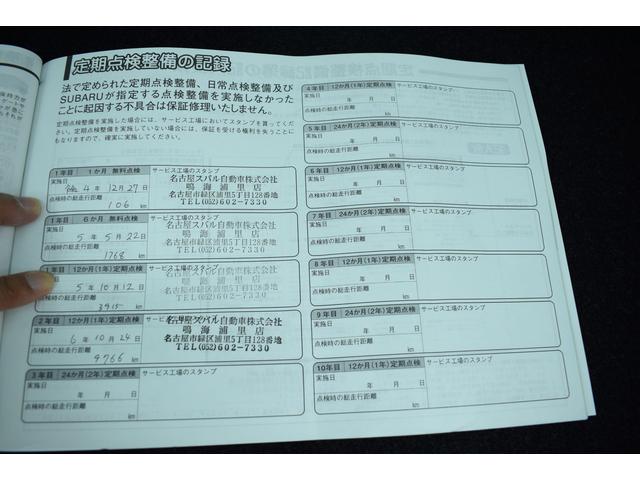 定期点検整備の記録
法で定められた定期点検整備、日常点検整備及び
SUBARUが指定する点検整備を実施しなかった
ことに起因する不具合は保証修理いたしません。
定期点検整備を実施した場合には、サービス工場においてスタンプを貰ってくだ
さい。定期点検整備を実施していない場合には、保証を受ける権利を失うことに
もなりますので、確実に実施してください。
1年目 1か月 無料点検 サービス工場のスタンプ
実施日
4年 12月 27日
点検時の総走行距離
106 km
名古屋スバル自動車株式会社
鳴海浦里店
名古屋市緑区浦里5丁目128番地
TEL(052)602-7330
1年目 6か月 無料点検 サービス工場のスタンプ
実施日
5年 5月 22日
点検時の総走行距離
1768 km
名古屋スバル自動車株式会社
鳴海浦里店
名古屋市緑区浦里5丁目128番地
TEL(052)602-7330
1年目 12か月(1年)定期点検 サービス工場のスタンプ
実施日
5年 10月 12日
点検時の総走行距離
3915 km
名古屋スバル自動車株式会社
鳴海浦里店
名古屋市緑区浦里5丁目128番地
TEL(052)602-7330
2年目 12か月(1年)定期点検 サービス工場のスタンプ
実施日
6年 10月 24日
点検時の総走行距離
9766 km
名古屋スバル自動車株式会社
鳴海浦里店
名古屋市緑区浦里5丁目128番地
TEL(052)602-7330
3年目 24か月(2年)定期点検 サービス工場のスタンプ
実施日
年 月 日
点検時の総走行距離
km
4年目 12か月(1年)定期点検 サービス工場のスタンプ
実施日
年 月 日
点検時の総走行距離
km
5年目 24か月(2年)定期点検 サービス工場のスタンプ
実施日
年 月 日
点検時の総走行距離
km
6年目 12か月(1年)定期点検 サービス工場のスタンプ
実施日
年 月 日
点検時の総走行距離
km
7年目 24か月(2年)定期点検 サービス工場のスタンプ
実施日
年 月 日
点検時の総走行距離
km
8年目 12か月(1年)定期点検 サービス工場のスタンプ
実施日
年 月 日
点検時の総走行距離
km
9年目 24か月(2年)定期点検 サービス工場のスタンプ
実施日
年 月 日
点検時の総走行距離
km
10年目 12か月(1年)定期点検 サービス工場のスタンプ
実施日
年 月 日
点検時の総走行距離
km